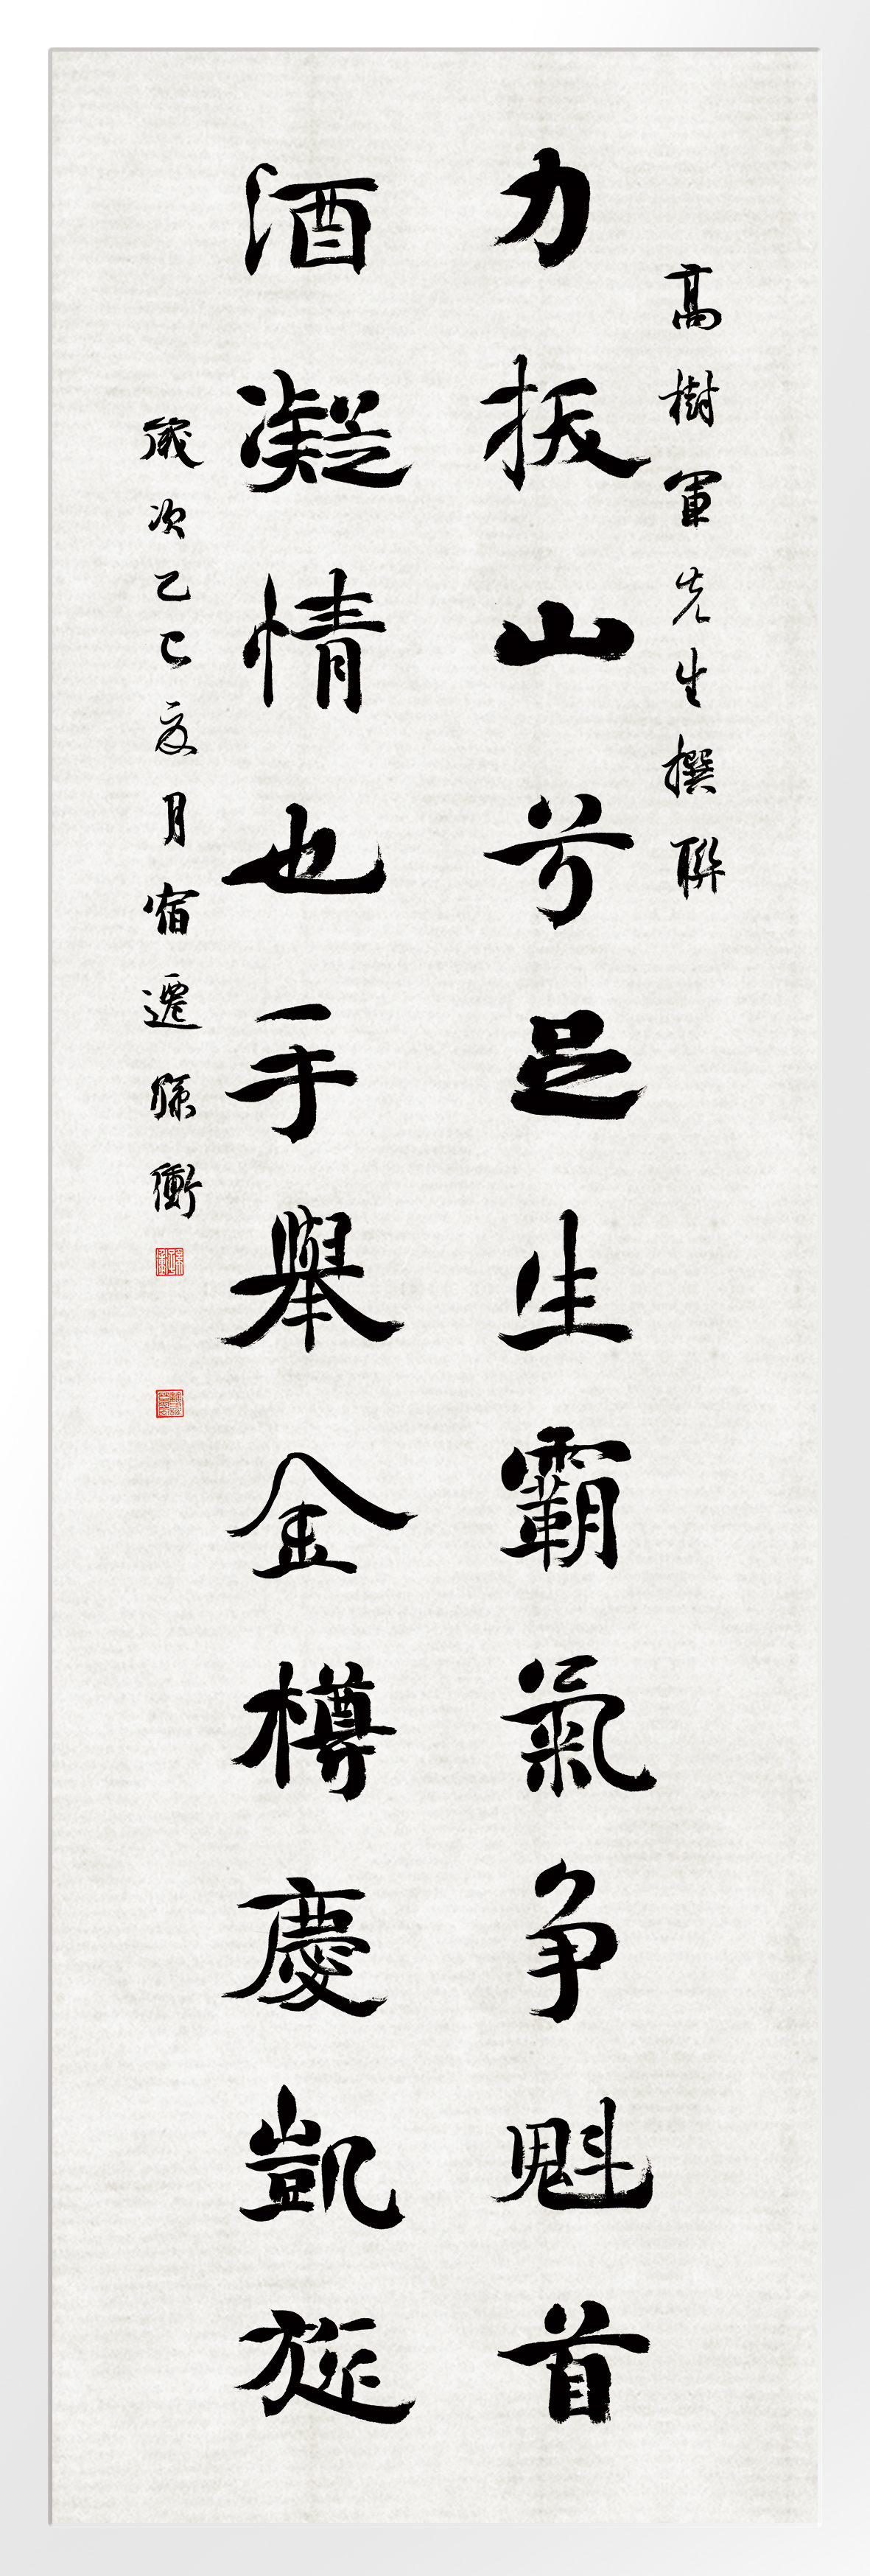 高樹軍先生撰聯
力拔山兮足生霸氣争魁首
酒凝情也手舉金樽慶凱旋
歲次乙巳夏月宿遷孫衛